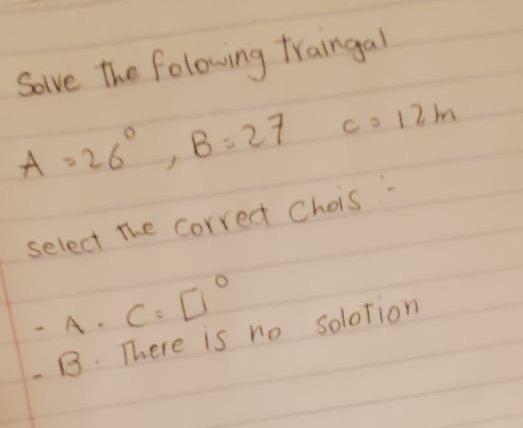 Solve The folowing traingal
A = 26° , B = 27 c = 12m
select the correct Chois :-
- A . C = □°
- B . There is no solotion